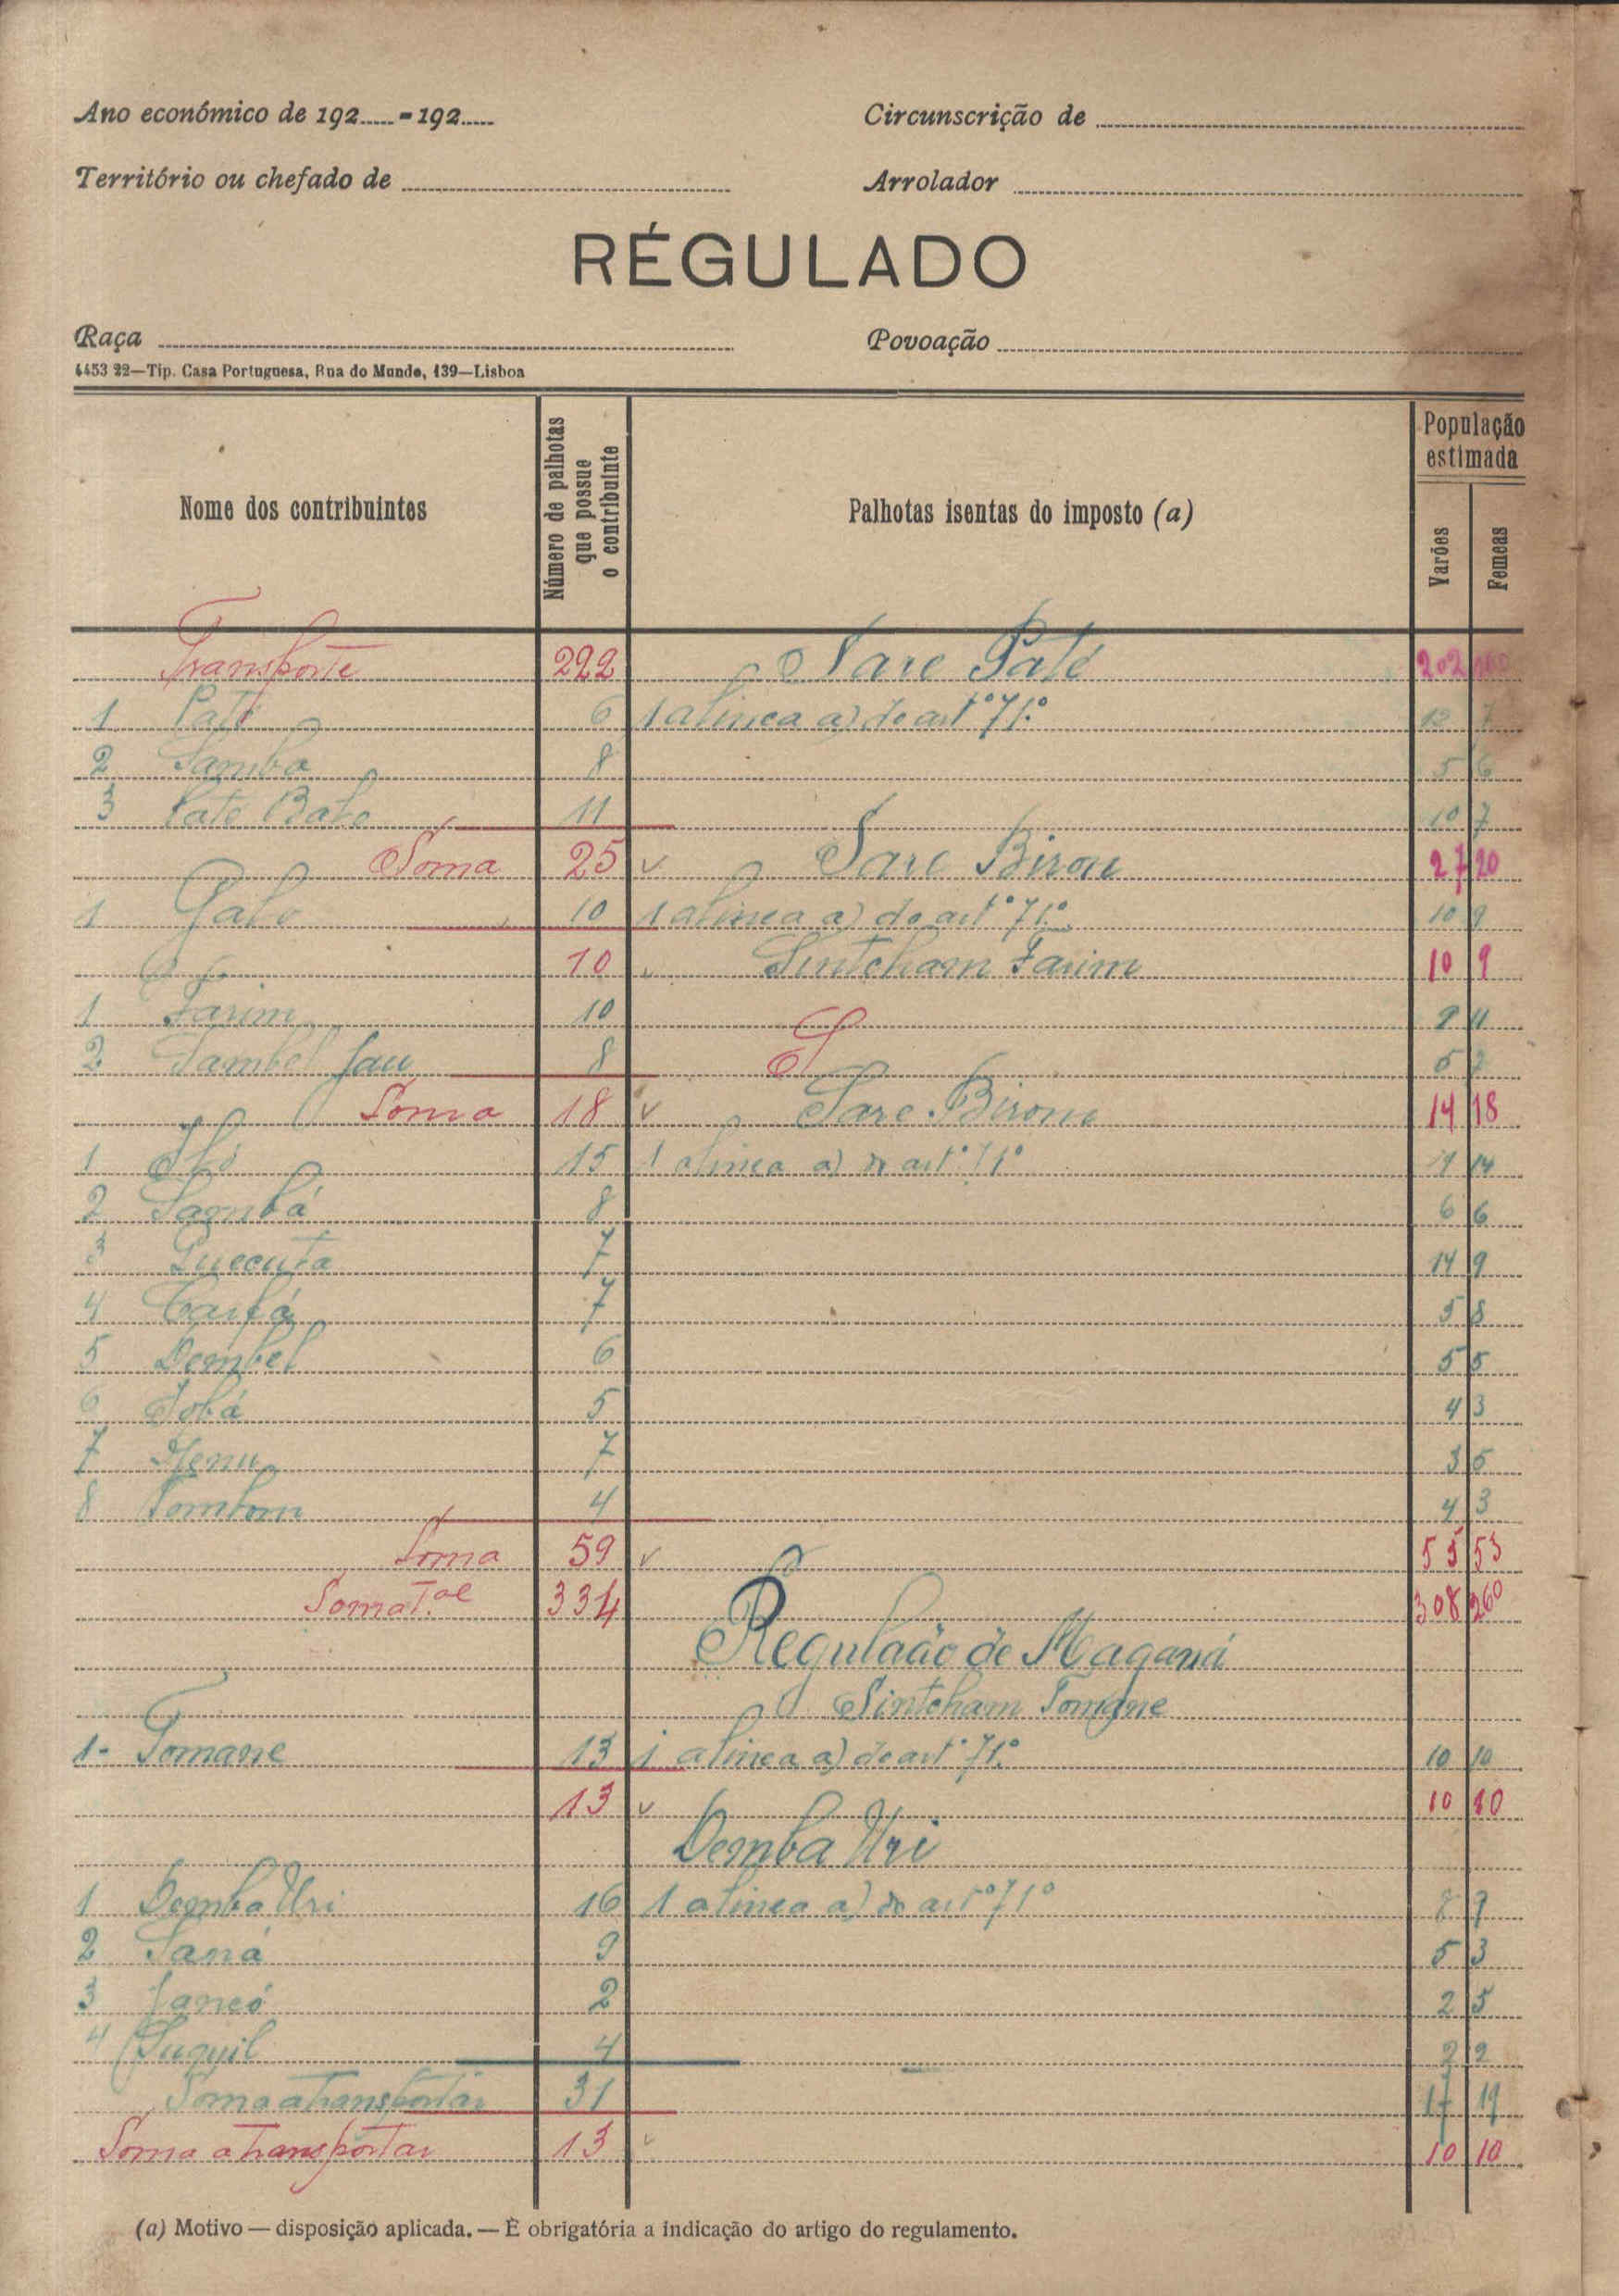 Ano económico de 192 - 192 Circunscrição de
Território ou chefado de Arrolador
RÉGULADO
Raça Povoação
4453 22—Tip. Casa Portuguesa, Rua do Mundo, 139—Lisboa
Nome dos contribuintes Número de palhotas que possue o contribuinte Palhotas isentas do imposto (a) População estimada Varões Femeas
Transporte 222 Sare Paté 202 160
1 Paté 6 1 alinea a) do artº 71º 12 7
2 Samba 8 5 6
3 Paté Baló 11 10 7
Soma 25 v Sare Birone 27 20
1 10 1 alinea a) do artº 71º 10 9
10 Sintcham Farim 10 9
1 Farim 10 9 11
2 Jau 8 5 7
Soma 18 v Sare Birone 14 18
1 15 1 alinea a) do artº 71º 14 14
2 Sambá 8 6 6
3 7 14 9
4 7 5 8
5 Dembel 6 5 5
6 5 4 3
7 7 3 5
8 Tombom 4 4 3
Soma 59 v 55 53
Soma T.al 334 308 260
Regulado de Maganá
Sintcham Tomane
1- Tomane 13 1 alinea a) do artº 71º 10 10
13 v 10 10
Demba Uri
1 Demba Uri 16 1 alinea a) do artº 71º 8 9
2 Saná 9 5 3
3 Jancó 2 2 5
4 4 2 2
Soma a transportar 31 17 19
Soma a transportar 13 v 10 10
(a) Motivo — disposição aplicada. — È obrigatória a indicação do artigo do regulamento.